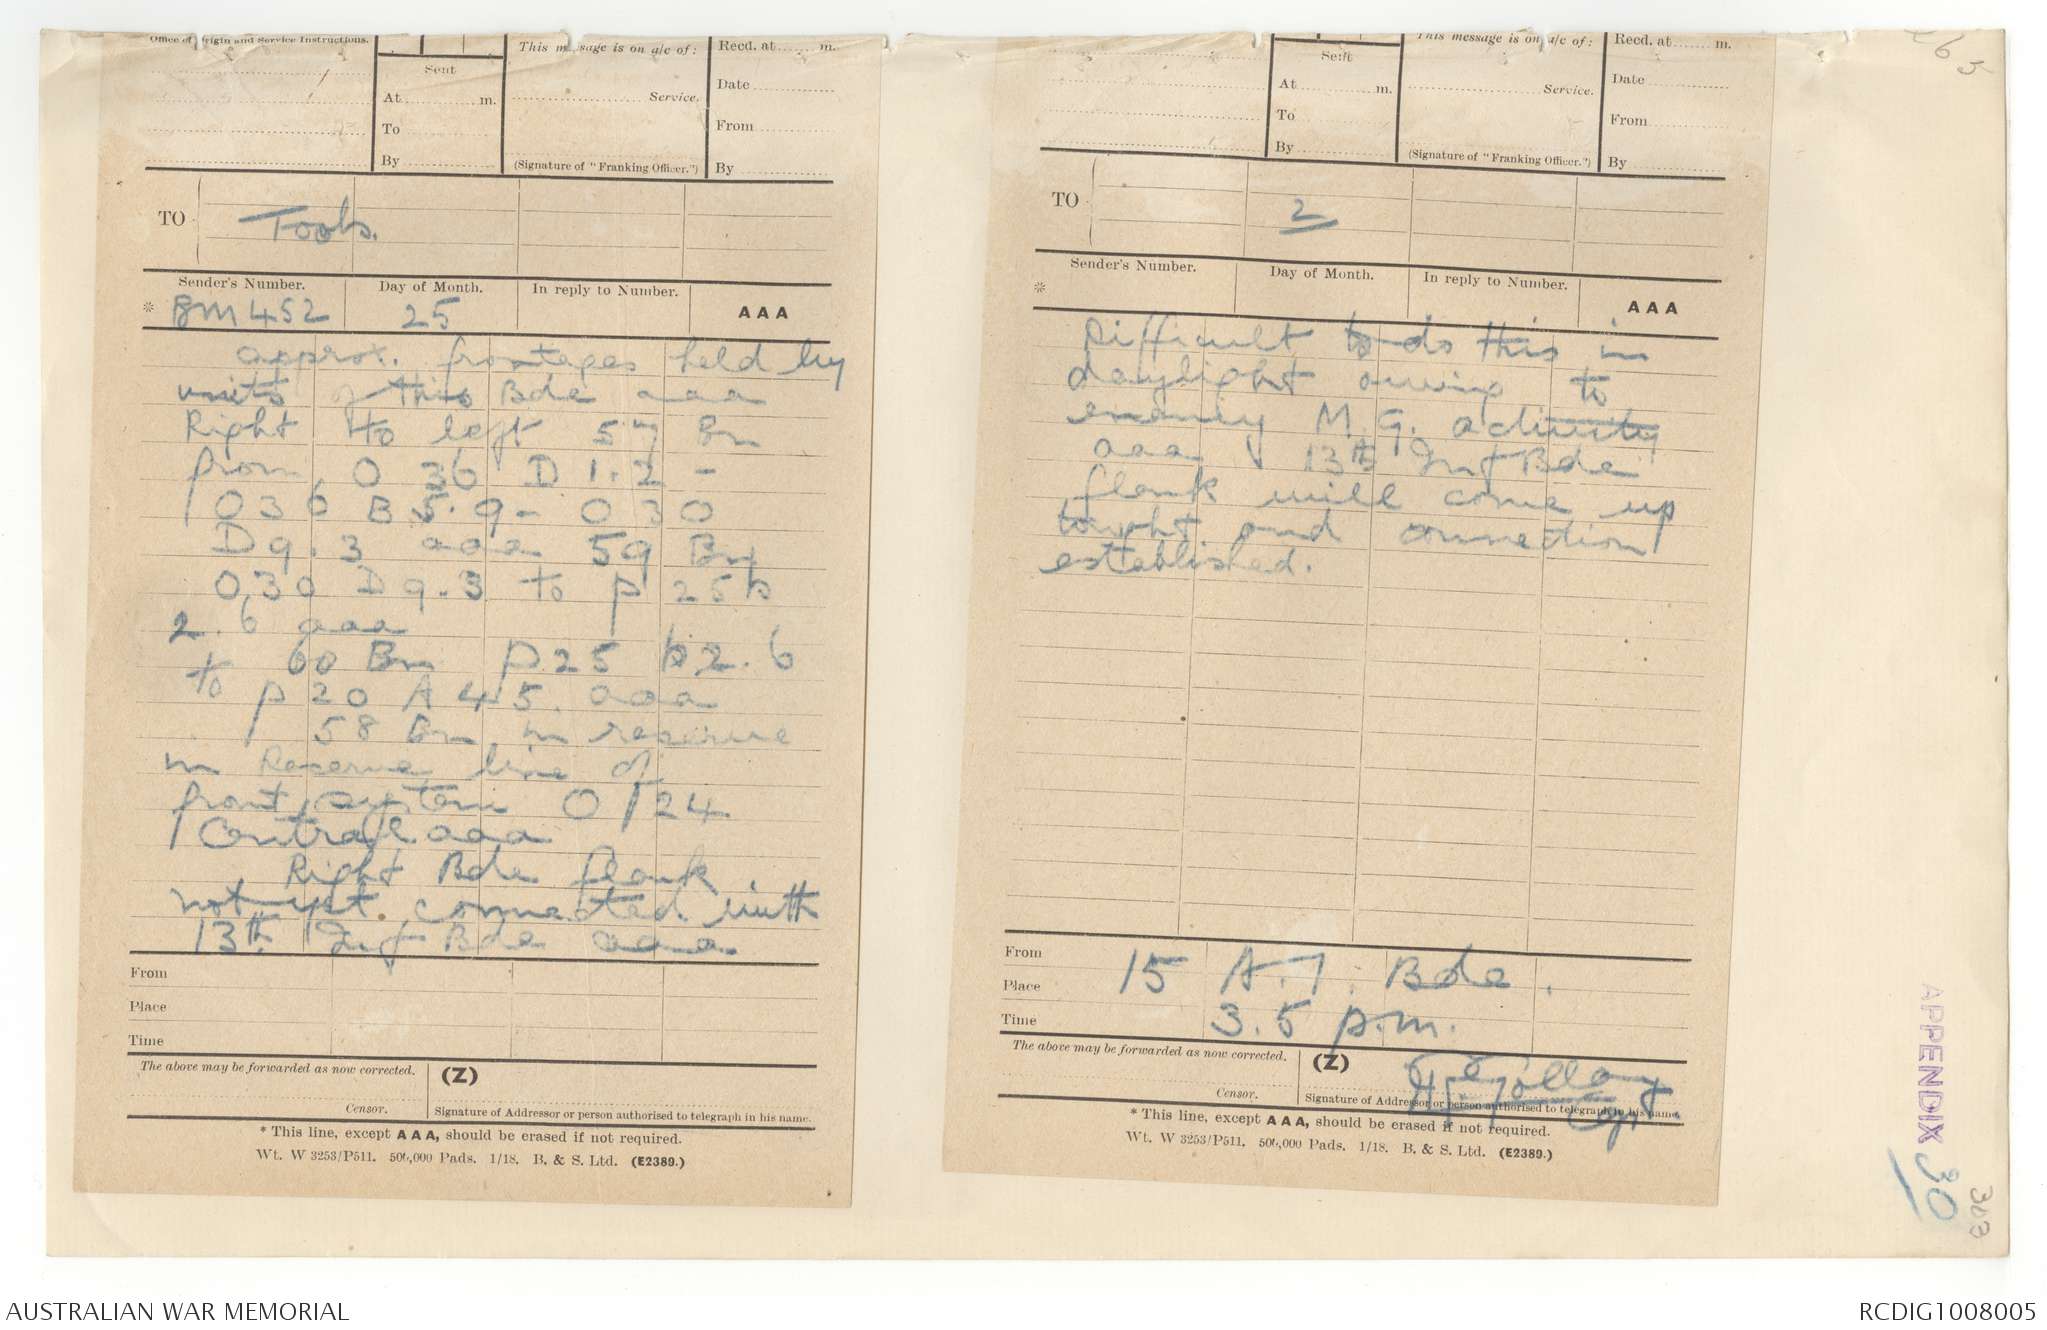 Office of Origin and Service Instructions.
Sent
At m.
To
By
This message is on a/c of:
Service.
(Signature of "Franking Officer.")
Recd. at m.
Date
From
By
TO
Toobs.
Sender's Number.
Day of Month.
In reply to Number.
AAA
* BM 452
25
approx. frontages held by
units of this Bde aaa
Right to left 57 Bn
from O 36 D 1.2 -
O 36 B 5.9 - O 30
D 9.3 aaa 59 Bn
O 30 D 9.3 to P 25 b
2.6 aaa
60 Bn P 25 b 2.6
to P 20 A 4.5. aaa
58 Bn in reserve
in Reserve line of
front system O 24
Central aaa
Right Bde flank
not yet connected with
13th Inf Bde aaa
From
Place
Time
The above may be forwarded as now corrected.
(Z)
Censor.
Signature of Addressor or person authorised to telegraph in his name.
* This line, except AAA, should be erased if not required.
Wt. W 3253/P511. 500,000 Pads. 1/18. B. & S. Ltd. (E2389.)
Sent
At m.
To
By
This message is on a/c of:
Service.
(Signature of "Franking Officer.")
Recd. at m.
Date
From
By
TO
2
Sender's Number.
Day of Month.
In reply to Number.
*
AAA
Difficult to do this in
daylight owing to
enemy M.G. activity
aaa 13th Inf Bde
flank will come up
tonight and connection
established.
From
Place
Time
15 A.I. Bde.
3.5 p.m.
The above may be forwarded as now corrected.
(Z)
Censor.
Capt
Signature of Addressor or person authorised to telegraph in his name.
* This line, except AAA, should be erased if not required.
Wt. W 3253/P511. 500,000 Pads. 1/18. B. & S. Ltd. (E2389.)
APPENDIX 30
303
AUSTRALIAN WAR MEMORIAL
RCDIG1008005